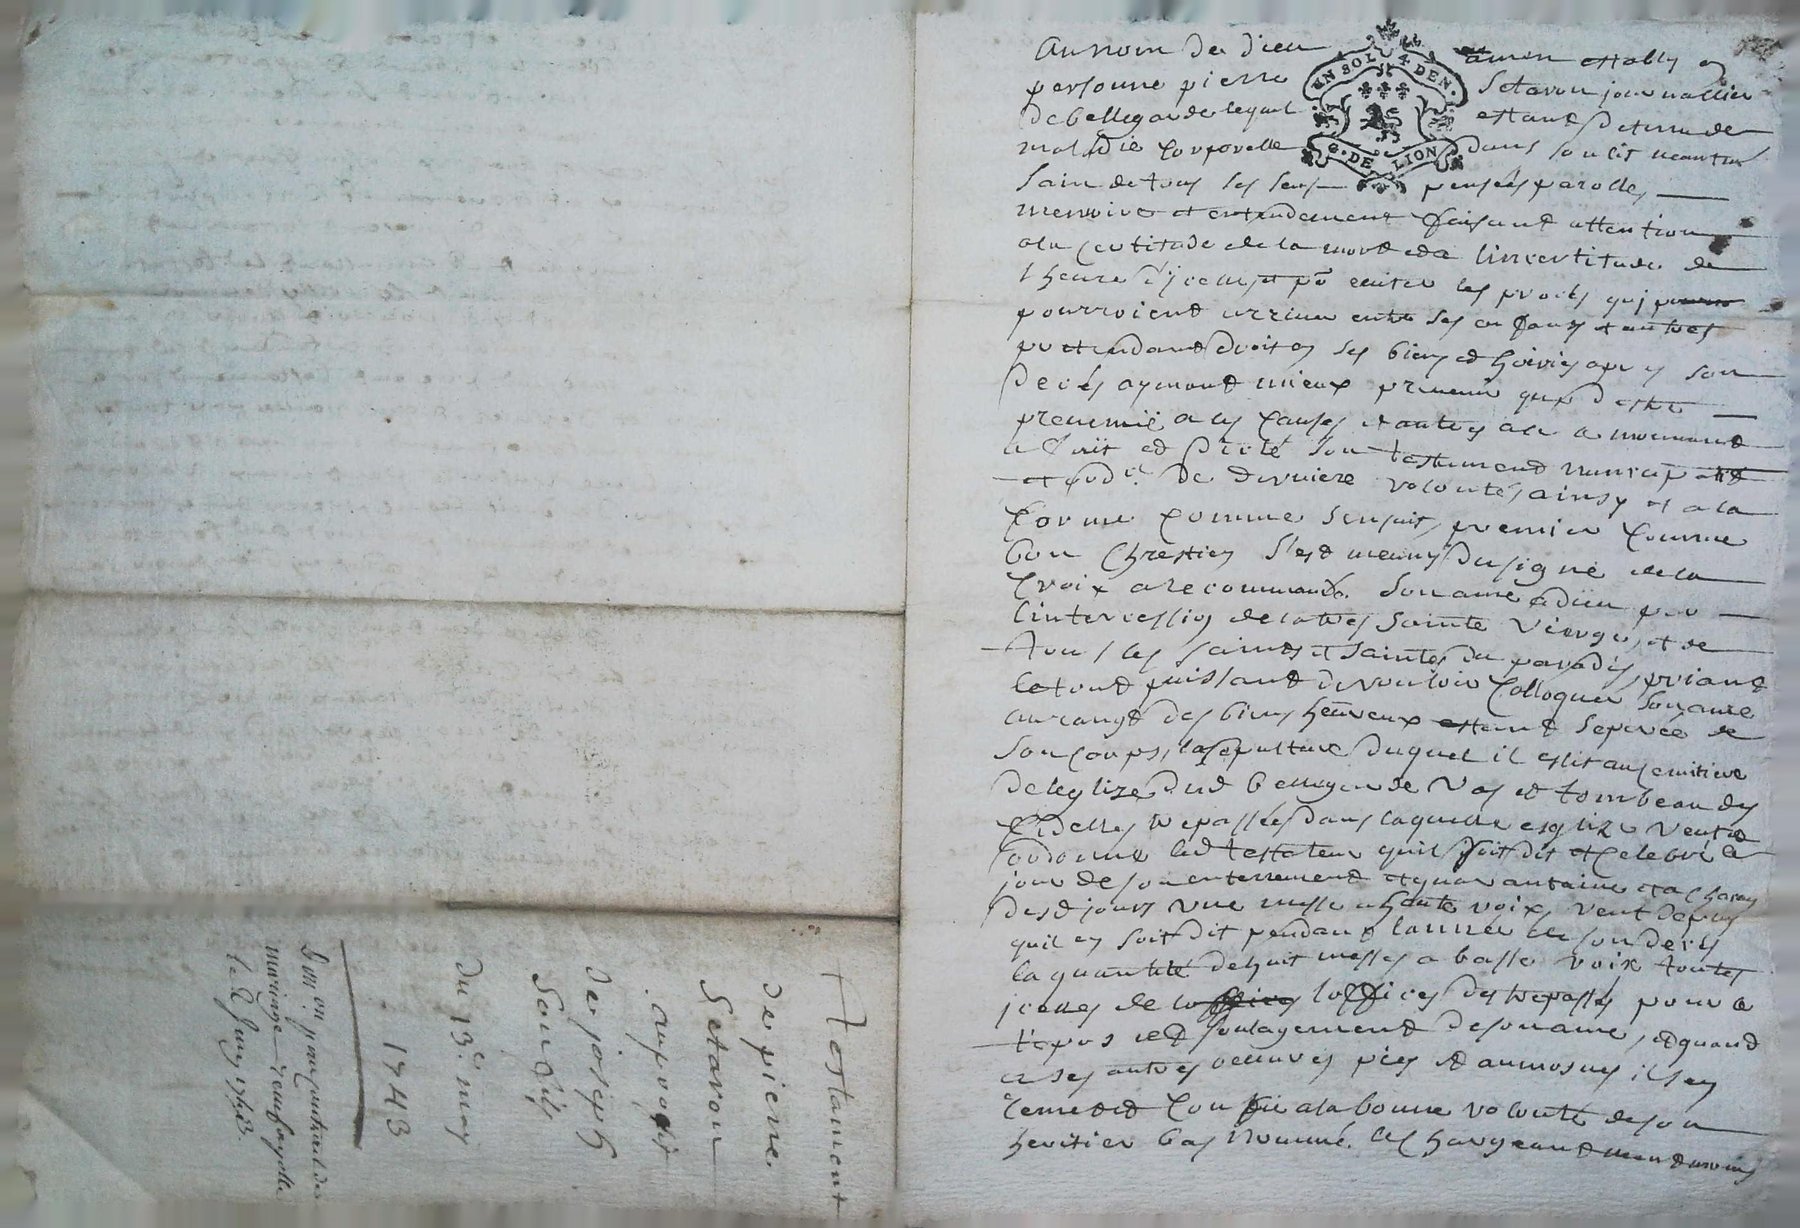 Testament
de pierre
Setaron
au profit
de joseph
son fils
du 13e. may
1743
bon on par contract de
mariage
le 2 juin 1743.
Au nom de dieu amen estably en
personne pierre Setaron journallier
de bellegarde lequel estant detenu de
maladie corporelle dans son lit neantm
sain de tous ses sens pensées parolles
memoire et entendement faisant attention
a la certitude de la mort et a l'incertitude de
l heure d'jcelle et po eviter les procès quj
pourroient arriver entre ses enfans et autres
pretendant droit en ses biens et hoirie apres son
decès aymant mieux prevenir que d estre
prevenu a ces causes et autres a ce mouvant
a fait et dicté son testament nuncupatif
et ord.e de derniere volonté, ainsy et a la
forme comme s'ensuit, premier comme
bon Chrestien s'est meuny du signe de la
croix a recommandé son ame a dieu par
l'intercession de la tres Sainte Vierge, et de
tous les saints et saintes du paradis, priant
le tout puissant de vouloir colloquer son ame
au rangt des bien heureux estant separée de
son corps, la sepulture duquel il eslit au cemitiere
de leglize dud bellegarde Vas et tombeau des
fidelles trepassées dans laquelle esglize veut et
ordonne led testateur quil soit dit et celebré le
jour de son enterrement et quarantaine et a chacun
desd jours une messe a haute voix, veut de plus
quil en soit dit pendant lannée de son decès
la quantité de huit messes a basse voix toutes
jcelles de loffices des trepassés pour le
repos et soulagement de son ame, et quand
a ses autres oeuvres pies et aumosnes il s'en
remet et confie a la bonne volonté de son
heritier bas nommé. les chargeant neantmoins
UN SOL 4 DEN.
G. DE LION